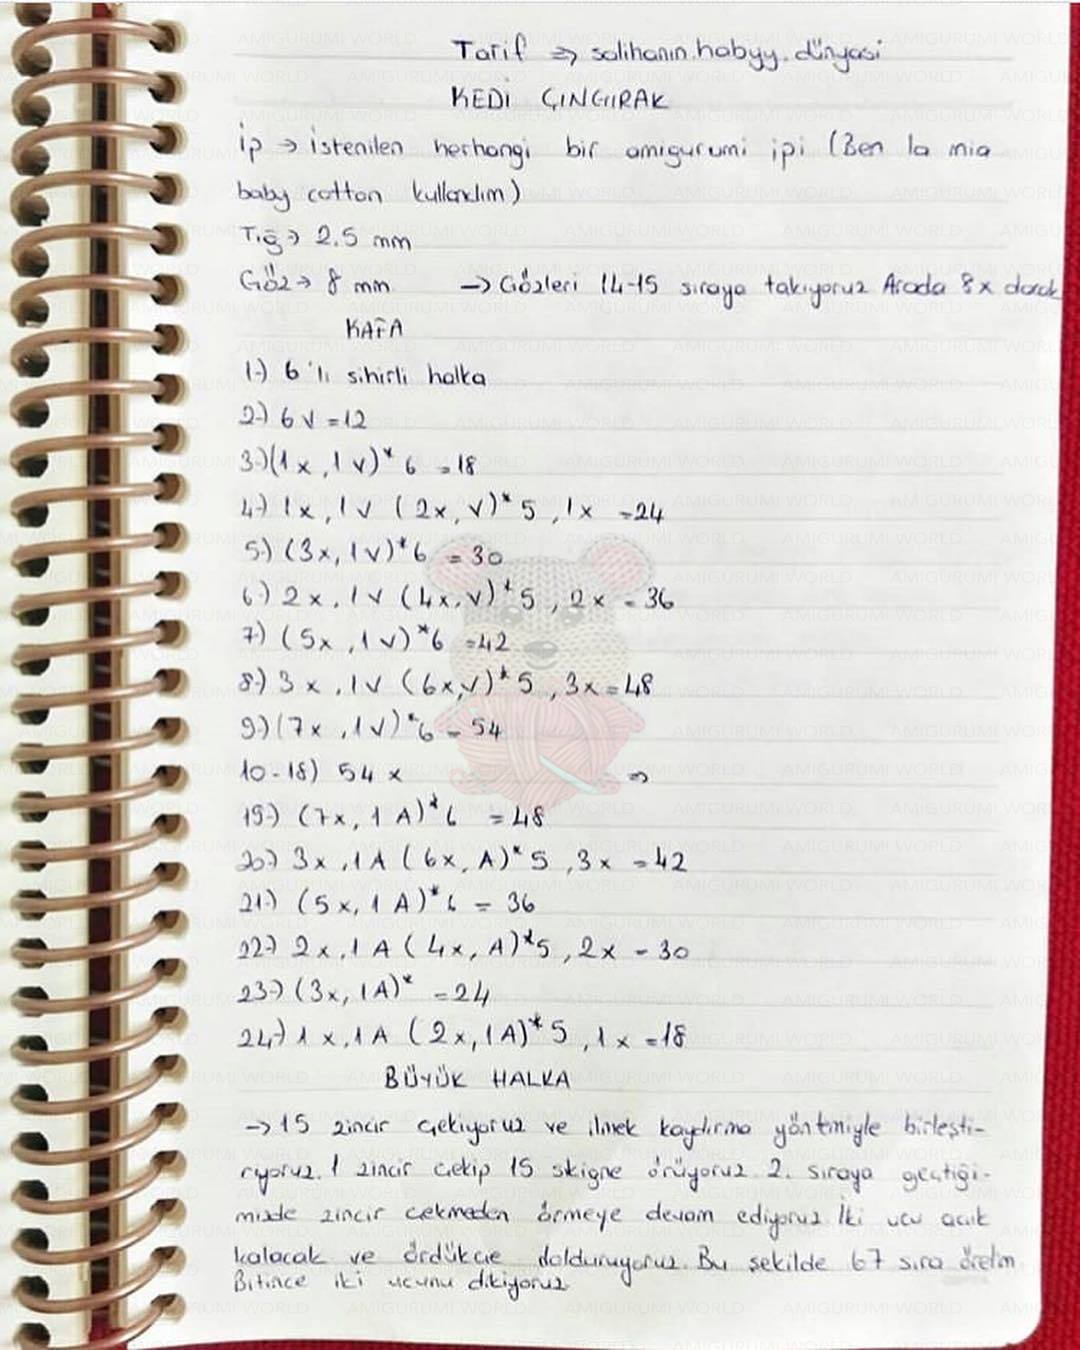 Tarif => salihanın.habyy.dünyasi
KEDİ ÇINGIRAK
İp → istenilen herhangi bir amigurumi ipi (Ben la mia
baby cotton kullandım)
Tığ → 2.5 mm
Göz → 8 mm. → Gözleri 14-15 sıraya takıyoruz Arada 8x olarak
KAFA
1-) 6'lı sihirli halka
2-) 6 V = 12
3-) (1x, 1v)* 6 = 18
4-) 1x, 1v (2x, v)* 5, 1x = 24
5-) (3x, 1v)*6 = 30
6-) 2x, 1v (4x, v)* 5, 2x = 36
7-) (5x, 1v)*6 = 42
8-) 3x, 1v (6x, v)* 5, 3x = 48
9-) (7x, 1v)*6 = 54
10-18) 54x =>
19-) (7x, 1A)*6 = 48
20-) 3x, 1A (6x, A)* 5, 3x = 42
21-) (5x, 1A)*6 = 36
22-) 2x, 1A (4x, A)*5, 2x = 30
23-) (3x, 1A)* = 24
24-) 1x, 1A (2x, 1A)* 5, 1x = 18
BÜYÜK HALKA
→ 15 zincir çekiyoruz ve ilmek kaydırma yöntmiyle birleşti-
riyoruz. 1 zincir çekip 15 skiğne örüyoruz. 2. sıraya geçtiği-
mizde zincir çekmeden örmeye devam ediyoruz. İki ucu açık
kalacak ve ördükçe dolduruyoruz. Bu şekilde 67 sıra örelim
Bitince iki ucunu dikiyoruz.
AMIGURUMI WORLD